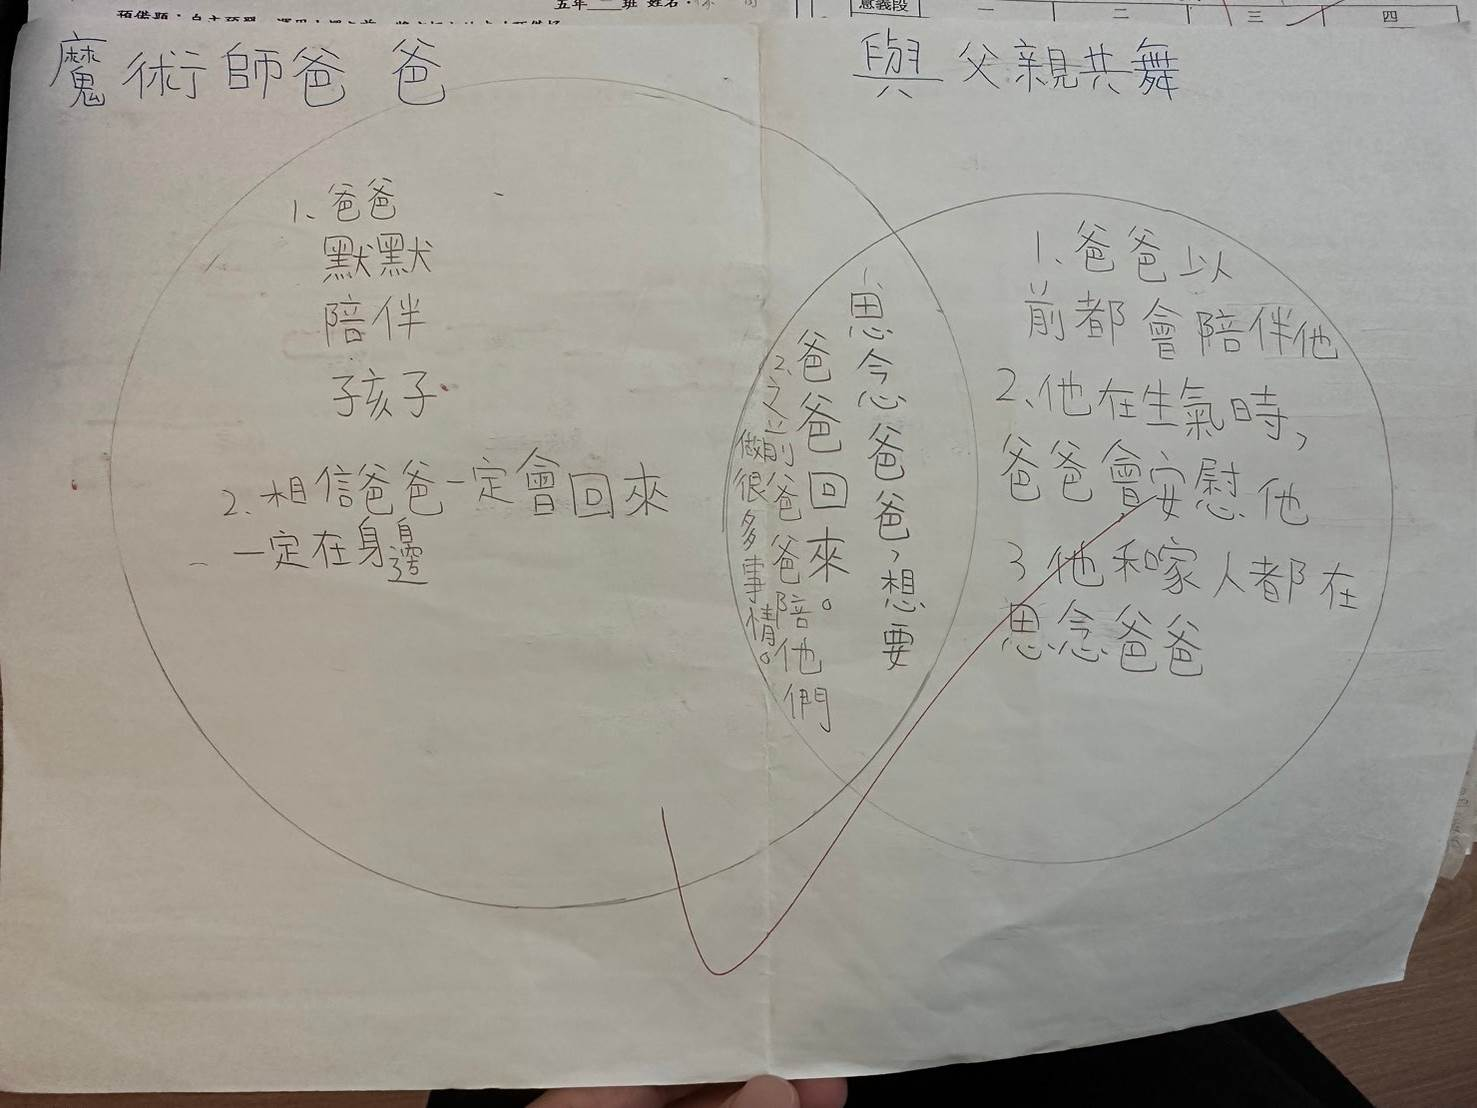 五年 一 班 姓名：
意義段 一 二 三 四
魔術師爸爸
與父親共舞
1、爸爸
默默
陪伴
孩子
2、相信爸爸一定會回來
一定在身邊
1、思念爸爸，想要
爸爸回來。
2、之前爸爸陪他們
做很多事情。
1、爸爸以
前都會陪伴他
2、他在生氣時，
爸爸會安慰他
3 他和家人都在
思念爸爸